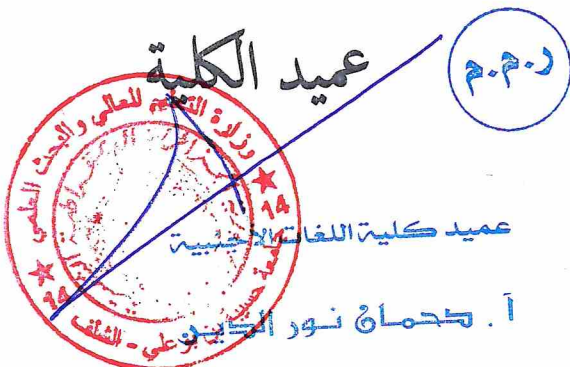 عميد الكلية
ر.م.م
وزارة التعليم العالي والبحث العلمي
14
14
جامعة حسيبة بن بوعلي - الشلف
عميد كلية اللغات الاجنبية
أ. دحمان نور الدين